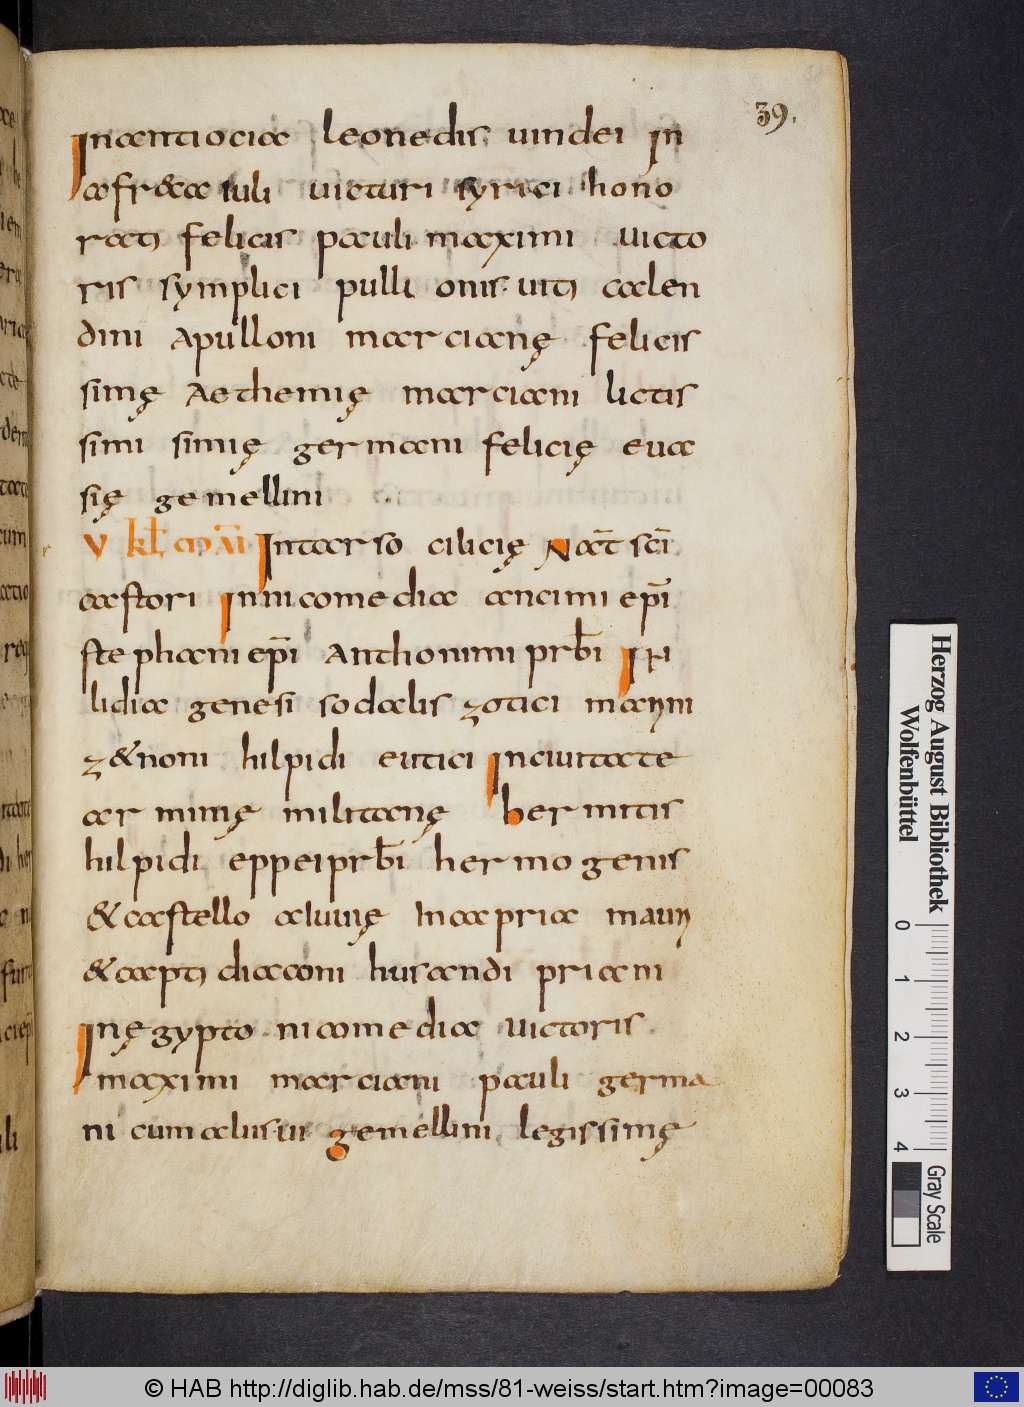 39.
Inantiociae leonedis uindei in
afretae iuli uicturi syrici hono
rati felicis pauli maximi uicto
ris symplici pulli onis uiti calen
dini apulloni marcianę felicis
simę aethemię marciani lictis
simi simię germani felicię eua
się gemellini
V kł mai Intarso cilicię Nat̄ sc̄i
castori Innicomedia ancimi ep̄i
stephani ep̄i anthonimi prb̄i In
lidia genesi sodalis zotici manni
zenoni hilpidi eutici Inciuitate
arminię militanę hermitis
hilpidi eppei prb̄i hermogenis
& castello aluuię In capria mauri
& capti diaconi husandi priani
Inęgypto nicomedia uictoris
maximi marciani pauli germa
ni cum alusui gemellini legissimę
Herzog August Bibliothek
Wolfenbüttel
0 1 2 3 4
Gray Scale
© HAB http://diglib.hab.de/mss/81-weiss/start.htm?image=00083